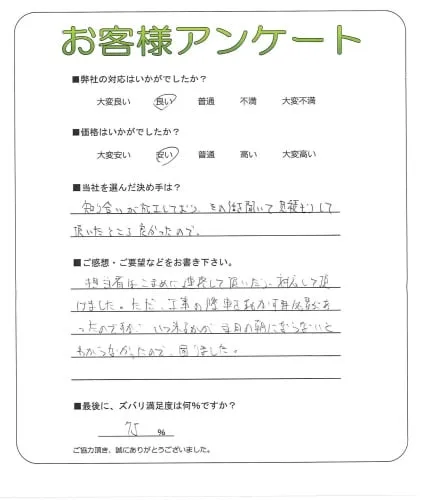 お客様アンケート
■弊社の対応はいかがでしたか？
大変良い 良い 普通 不満 大変不満
■価格はいかがでしたか？
大変安い 安い 普通 高い 大変高い
■当社を選んだ決め手は？
知り合いが施工しており、その話聞いて見積もりして
頂いたところ良かったので。
■ご感想・ご要望などをお書き下さい。
担当者はこまめに連絡して頂いたり、対応して頂
けました。ただ、工事の際車を動かす必要があ
ったのですが、いつ来るかが当日の朝にならないと
わからなかったので、困りました。
■最後に、ズバリ満足度は何％ですか？
75 ％
ご協力頂き、誠にありがとうございました。